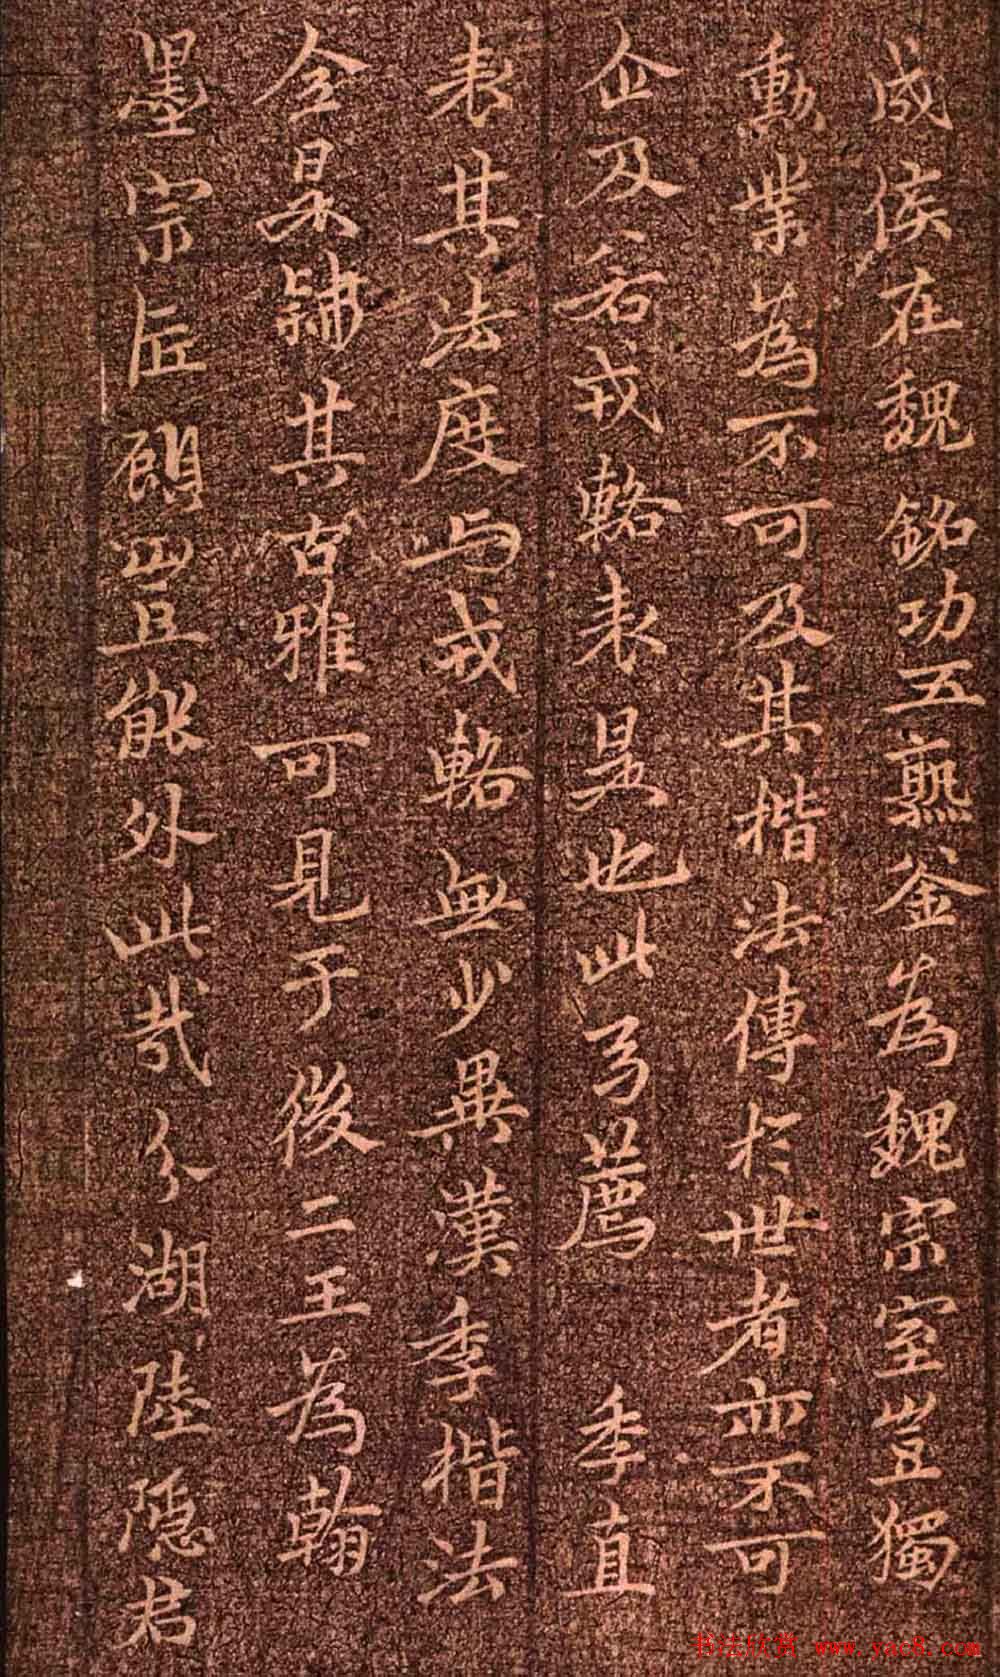 成侯在魏銘功五熟釜為魏宗室豈獨
勳業為不可及其楷法傳於世者亦不可
企及若戎輅表是也此爲薦季直
表其法度与戎輅無少異漢季楷法
全是隸其古雅可見于後二王為翰
墨宗匠顧豈能外此哉分湖陸隱君
书法欣赏 www.yac8.com